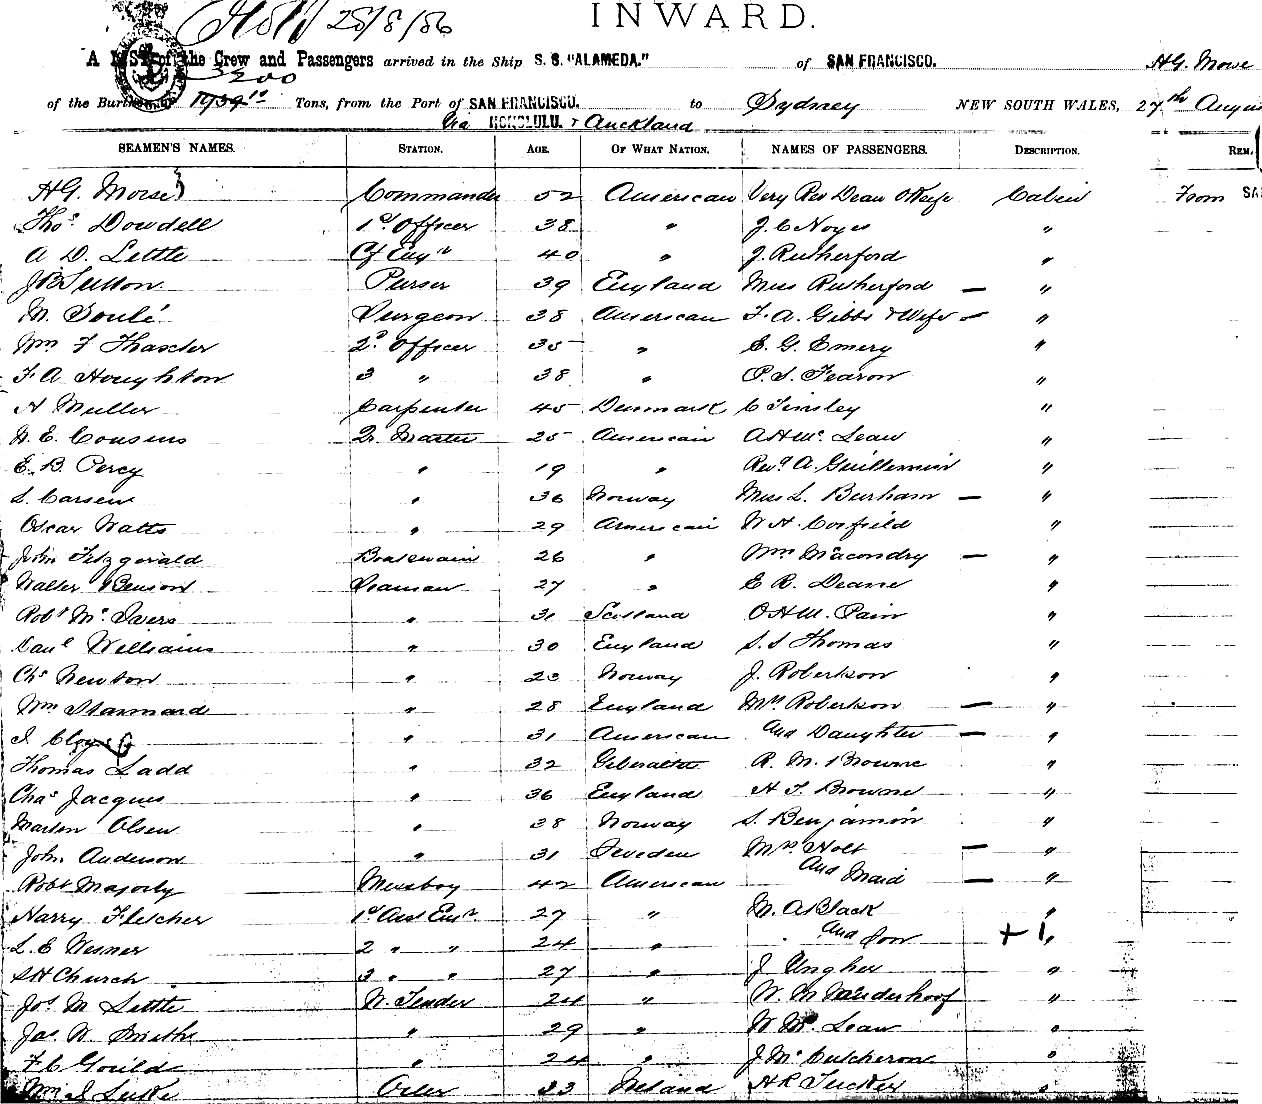 INWARD.
28/8/86
A LIST of the Crew and Passengers arrived in the Ship S. S. "ALAMEDA." of SAN FRANCISCO. HG. Morse
3200
of the Burthen of 1939 Tons, from the Port of SAN FRANCISCO. to Sydney NEW SOUTH WALES, 27th Augus
Via HONOLULU. & Auckland
SEAMEN'S NAMES. STATION. AGE. OF WHAT NATION. NAMES OF PASSENGERS. DESCRIPTION. REM.
HG. Morse Commander 52 American Very Rev Dean OKeefe Cabin From SA
Thos Dowdell 1st Officer 38 " J. C Noyes "
A D. Little Cf Engr 40 " J. Rutherford "
J B Sutton Purser 39 England Miss Rutherford — "
M. Soulé Surgeon 38 American F. A. Gibbs & Wife — "
Wm F Thaxter 2d Officer 35 " E. G. Emery "
F A Houghton 3 " 38 " P. S. Fearon "
A Muller Carpenter 45 Denmark C Tinsley "
N. E. Cousens Qr Master 25 American A H Mc Lean "
E. B. Percy " 19 " Revd A. Guillemin "
S. Carsen " 36 Norway Miss L. Burham — "
Oscar Watts " 29 American W H Corfield "
John Fitzgerald Boatswain 26 " Wm Macondry — "
Walter Benson Seaman 27 " E R. Deane "
Robt Mc Ivers " 31 Scotland O H W. Pain "
Danl Williams " 30 England S. S Thomas "
Chs Newton " 23 Norway J. Robertson "
Wm Stannard " 28 England Mrs Robertson — "
" 31 American and Daughter — "
Thomas Ladd " 32 Giberalta R. M. Browne "
Chas Jacques " 36 England H. T. Browne "
Marten Olsen " 38 Norway S. Benjamin "
John Anderson " 31 Sweden Mrs Holt — "
Robt Majorly Messboy 42 American and Maid — "
Harry Fletcher 1st Asst Engr 27 " M. A Black "
L. E Wesner 2 " " 24 " and Son +1 "
S H Church 3 " " 27 " J Ungher "
Jos M Little W. Tender 24 " W. M Vanderhoof "
Jas W. Smith " 29 " W Mc Lean "
F. C Gould " 24 " J. Mc Cutcheron "
Wm J Luske Oiler 33 Ireland H R Tucker "